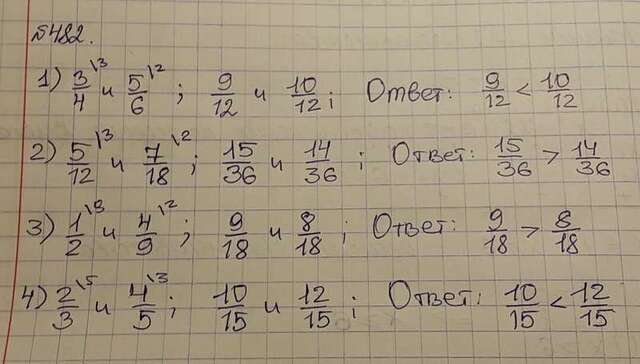 №482.
1) 3/4 \3 и 5/6 \2 ; 9/12 и 10/12 ; Ответ: 9/12 < 10/12
2) 5/12 \3 и 7/18 \2 ; 15/36 и 14/36 ; Ответ: 15/36 > 14/36
3) 1/2 \9 и 4/9 \2 ; 9/18 и 8/18 ; Ответ: 9/18 > 8/18
4) 2/3 \5 и 4/5 \3 ; 10/15 и 12/15 ; Ответ: 10/15 < 12/15